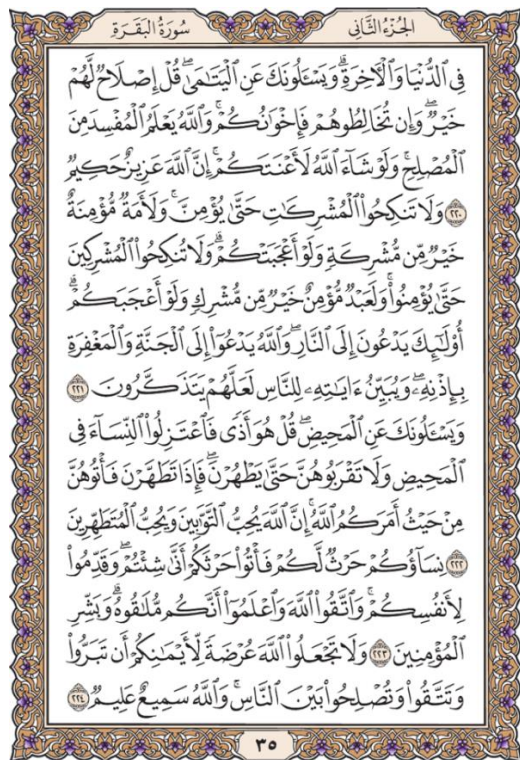 الجُزْءُ الثَّانِي
سُورَةُ البَقَرَةِ
فِي ٱلدُّنْيَا وَٱلْأٓخِرَةِۗ وَيَسْـَٔلُونَكَ عَنِ ٱلْيَتَٰمَىٰۖ قُلْ إِصْلَاحٌ لَّهُمْ
خَيْرٌۖ وَإِن تُخَالِطُوهُمْ فَإِخْوَٰنُكُمْۚ وَٱللَّهُ يَعْلَمُ ٱلْمُفْسِدَ مِنَ
ٱلْمُصْلِحِۚ وَلَوْ شَآءَ ٱللَّهُ لَأَعْنَتَكُمْۚ إِنَّ ٱللَّهَ عَزِيزٌ حَكِيمٌ
٢٢٠ وَلَا تَنكِحُوا۟ ٱلْمُشْرِكَٰتِ حَتَّىٰ يُؤْمِنَّۚ وَلَأَمَةٌ مُّؤْمِنَةٌ
خَيْرٌ مِّن مُّشْرِكَةٍ وَلَوْ أَعْجَبَتْكُمْۗ وَلَا تُنكِحُوا۟ ٱلْمُشْرِكِينَ
حَتَّىٰ يُؤْمِنُوا۟ۚ وَلَعَبْدٌ مُّؤْمِنٌ خَيْرٌ مِّن مُّشْرِكٍ وَلَوْ أَعْجَبَكُمْۗ
أُو۟لَٰٓئِكَ يَدْعُونَ إِلَى ٱلنَّارِۖ وَٱللَّهُ يَدْعُوٓا۟ إِلَى ٱلْجَنَّةِ وَٱلْمَغْفِرَةِ
بِإِذْنِهِۦۖ وَيُبَيِّنُ ءَايَٰتِهِۦ لِلنَّاسِ لَعَلَّهُمْ يَتَذَكَّرُونَ ٢٢١
وَيَسْـَٔلُونَكَ عَنِ ٱلْمَحِيضِۖ قُلْ هُوَ أَذًى فَٱعْتَزِلُوا۟ ٱلنِّسَآءَ فِي
ٱلْمَحِيضِ وَلَا تَقْرَبُوهُنَّ حَتَّىٰ يَطْهُرْنَۖ فَإِذَا تَطَهَّرْنَ فَأْتُوهُنَّ
مِنْ حَيْثُ أَمَرَكُمُ ٱللَّهُۚ إِنَّ ٱللَّهَ يُحِبُّ ٱلتَّوَّٰبِينَ وَيُحِبُّ ٱلْمُتَطَهِّرِينَ
٢٢٢ نِسَآؤُكُمْ حَرْثٌ لَّكُمْ فَأْتُوا۟ حَرْثَكُمْ أَنَّىٰ شِئْتُمْۖ وَقَدِّمُوا۟
لِأَنفُسِكُمْۚ وَٱتَّقُوا۟ ٱللَّهَ وَٱعْلَمُوٓا۟ أَنَّكُم مُّلَٰقُوهُۗ وَبَشِّرِ
ٱلْمُؤْمِنِينَ ٢٢٣ وَلَا تَجْعَلُوا۟ ٱللَّهَ عُرْضَةً لِّأَيْمَٰنِكُمْ أَن تَبَرُّوا۟
وَتَتَّقُوا۟ وَتُصْلِحُوا۟ بَيْنَ ٱلنَّاسِۚ وَٱللَّهُ سَمِيعٌ عَلِيمٌ ٢٢٤
٣٥